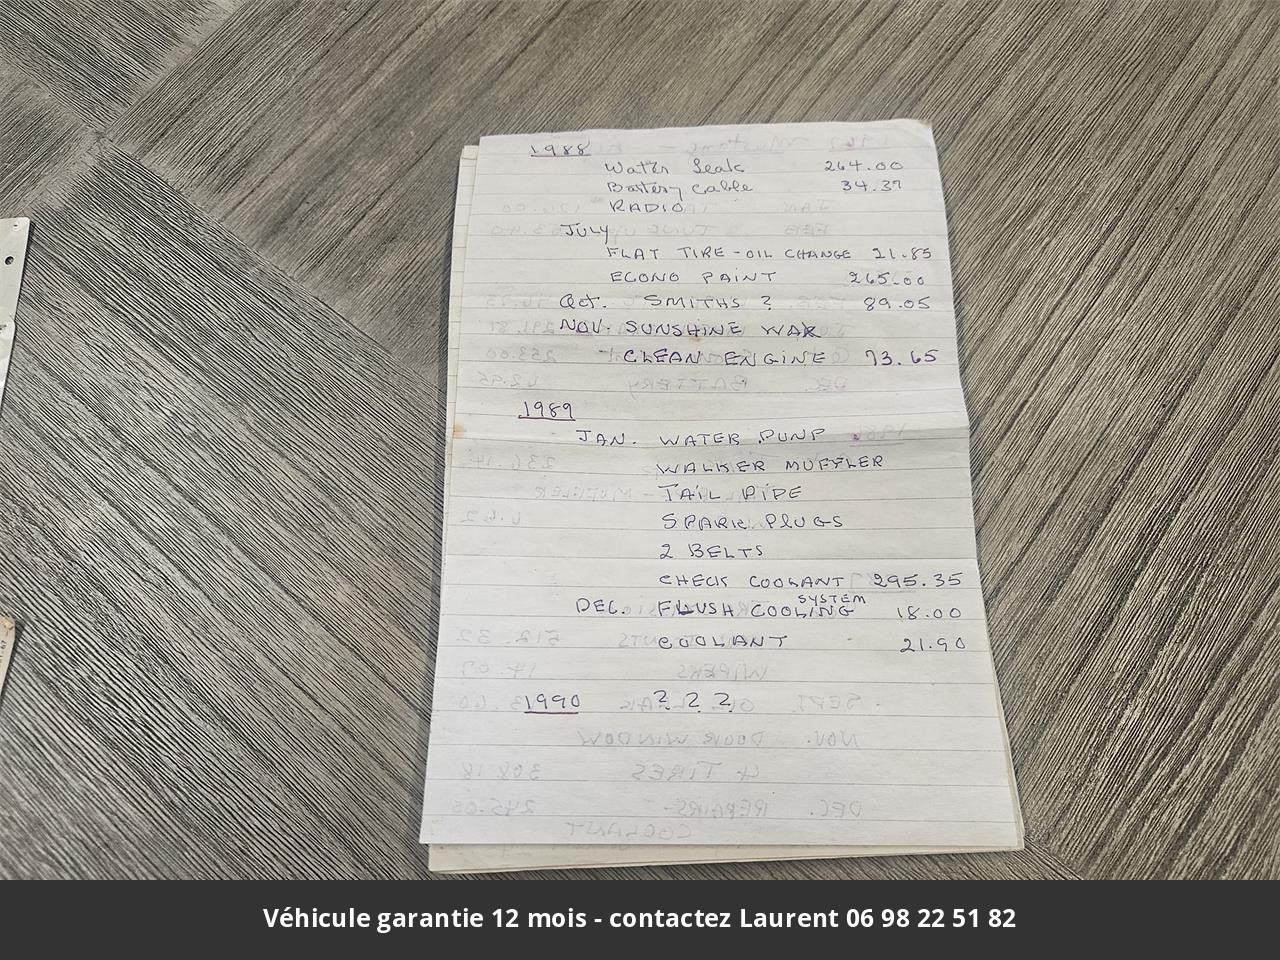 1988
Water Leak 264.00
Battery Cable 34.37
RADIO
JULY
FLAT TIRE - OIL CHANGE 21.85
ECONO PAINT 265.00
Oct. SMITHS ? 89.05
NOV. SUNSHINE WAX
CLEAN ENGINE 73.65
1989
JAN. WATER PUNP
WALKER MUFFLER
TAIL PIPE
SPARK PLUGS
2 BELTS
CHECK COOLANT 295.35
DEC. FLUSH COOLING SYSTEM 18.00
COOLANT 21.90
1990 ? ? ?
Véhicule garantie 12 mois - contactez Laurent 06 98 22 51 82